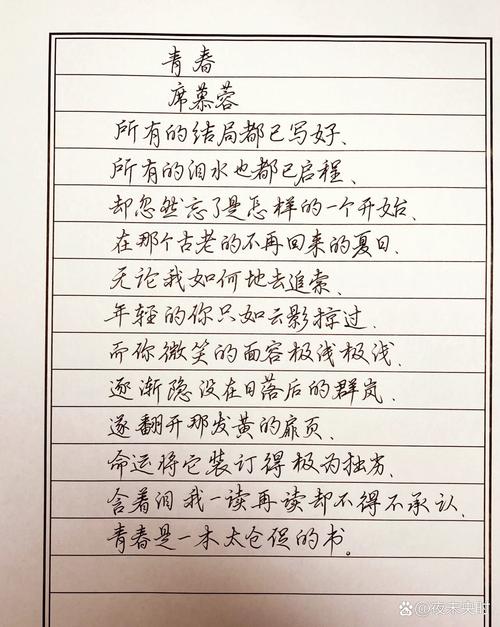 青春
席慕蓉
所有的结局都已写好、
所有的泪水也都已启程、
却忽然忘了是怎样的一个开始、
在那个古老的不再回来的夏日、
无论我如何地去追索、
年轻的你只如云影掠过、
而你微笑的面容极浅极浅、
逐渐隐没在日落后的群岚、
遂翻开那发黄的扉页、
命运将它装订得极为拙劣、
含着泪我一读再读却不得不承认、
青春是一本太仓促的书。
百家号@夜未央时